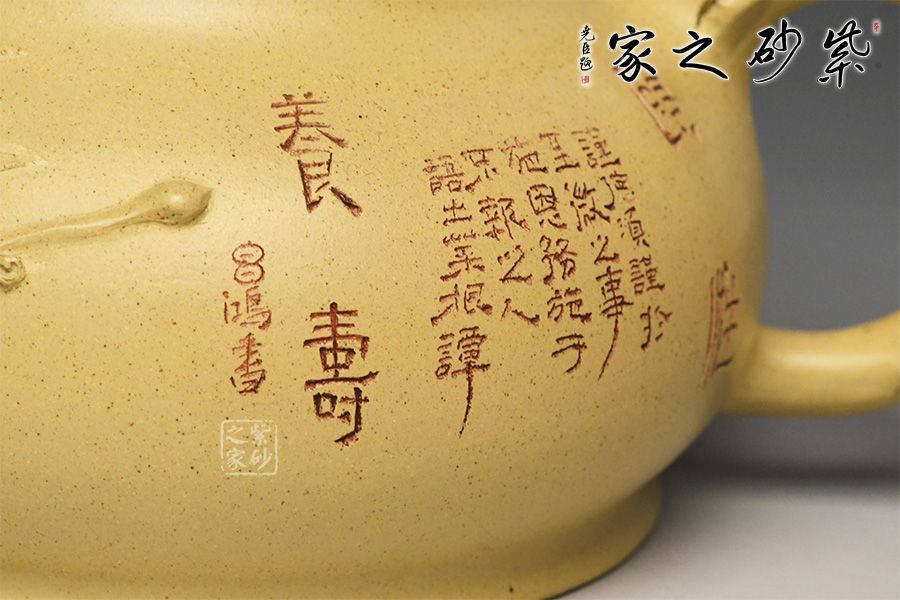 紫砂之家
堯臣題
謹德須謹於
至微之事
施恩務施于
不報之人
語出菜根譚
養壽
昌鴻書
紫砂
之家